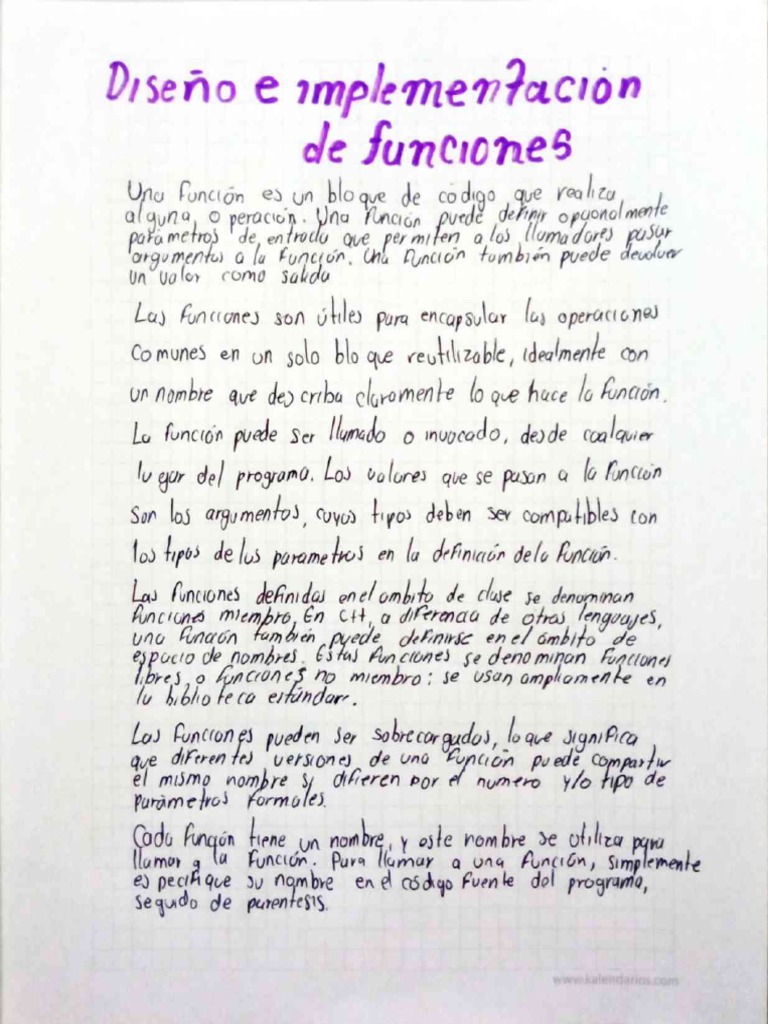 Diseño e implementación
de funciones
Una función es un bloque de código que realiza
alguna, operación. Una función puede definir opcionalmente
parámetros de entrada que permiten a los llamadores pasar
argumentos a la función. Una función también puede devolver
un valor como salida
Las funciones son útiles para encapsular las operaciones
comunes en un solo bloque reutilizable, idealmente con
un nombre que describa claramente lo que hace la función.
La función puede ser llamado o invocado, desde cualquier
lugar del programa. Los valores que se pasan a la función
son los argumentos, cuyos tipos deben ser compatibles con
los tipos de los parametros en la definición de la función.
Las funciones definidas en el ambito de clase se denominan
funciones miembro. En C++, a diferencia de otros lenguajes,
una función también puede definirse en el ámbito de
espacio de nombres. Estas funciones se denominan funciones
libres o funciones no miembro; se usan ampliamente en
la biblioteca estándar.
Las funciones pueden ser sobrecargadas, lo que significa
que diferentes versiones de una función puede compartir
el mismo nombre si difieren por el numero y/o tipo de
parámetros formales.
Cada función tiene un nombre, y este nombre se utiliza para
llamar a la función. Para llamar a una función, simplemente
especifique su nombre en el código fuente del programa,
seguido de parentesis.
www.kalendarios.com